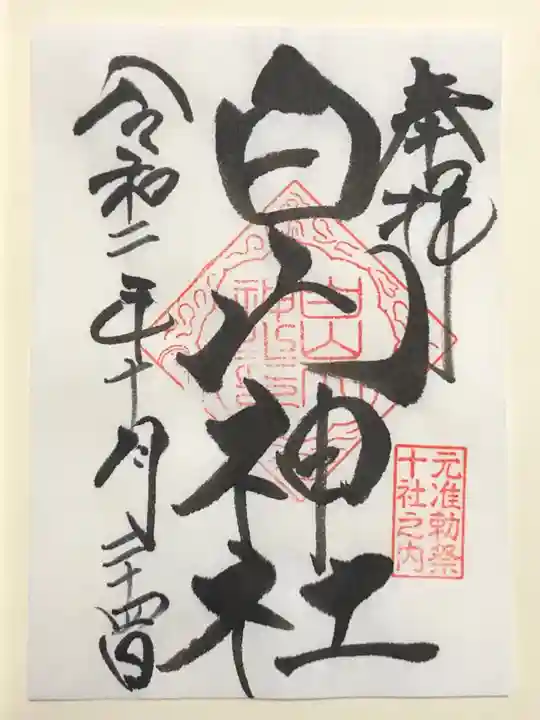 奉拝
白山神社
元准勅祭
十社之内
令和二年十月二十四日